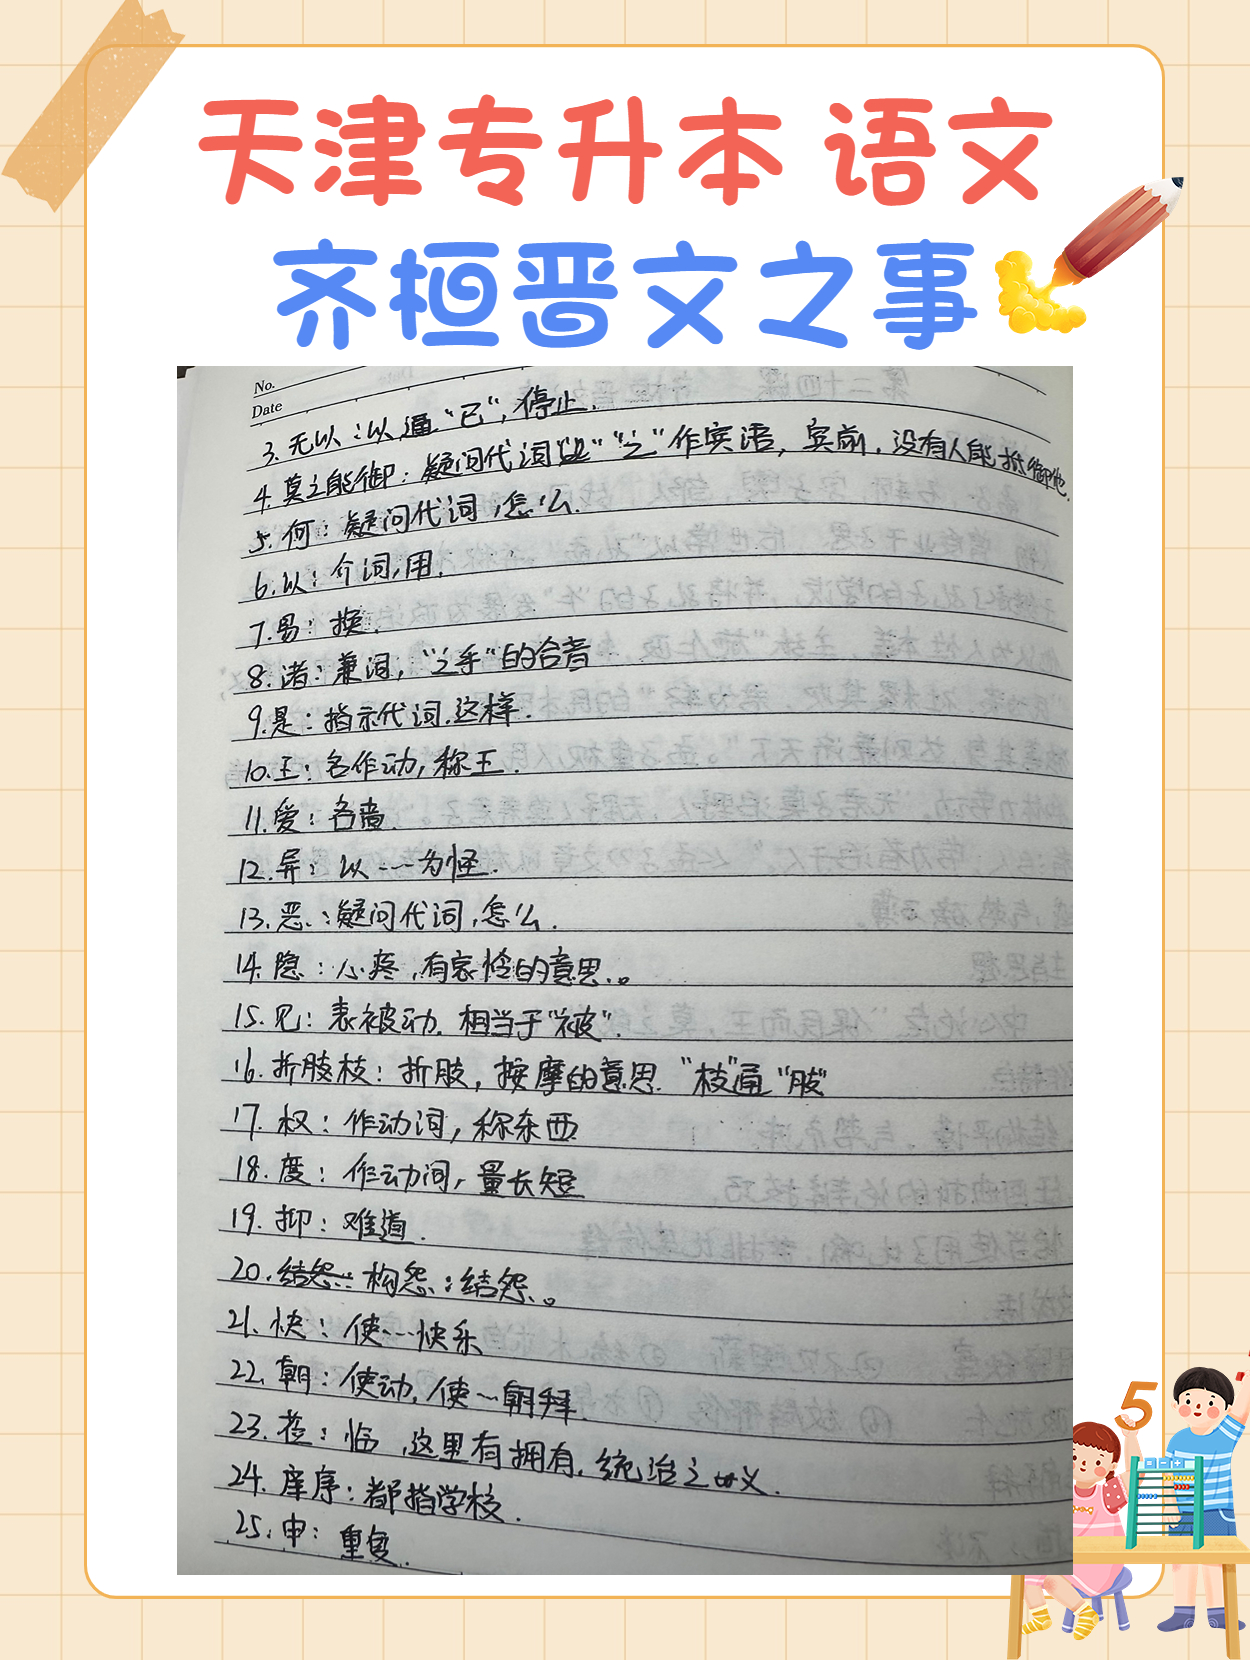 天津专升本 语文
齐桓晋文之事
No.
Date
3. 无以：以通“已”，停止.
4. 莫之能御：疑问代词 “之”作宾语，宾前，没有人能抵御他.
5. 何：疑问代词，怎么.
6. 以：介词，用.
7. 易：换.
8. 诸：兼词，“之乎”的合音
9. 是：指示代词.这样.
10. 王：名作动，称王.
11. 爱：吝啬.
12. 异：以……为怪.
13. 恶：疑问代词，怎么.
14. 隐：心疼，有哀怜的意思。
15. 见：表被动. 相当于“被”.
16. 折肢枝：折肢，按摩的意思. “枝”通“肢”
17. 权：作动词，称东西
18. 度：作动词，量长短
19. 抑：难道.
20. 结怨：构怨：结怨。
21. 快：使…快乐
22. 朝：使动，使…朝拜.
23. 莅：临，这里有拥有，统治之义.
24. 庠序：都指学校.
25. 申：重复.
5